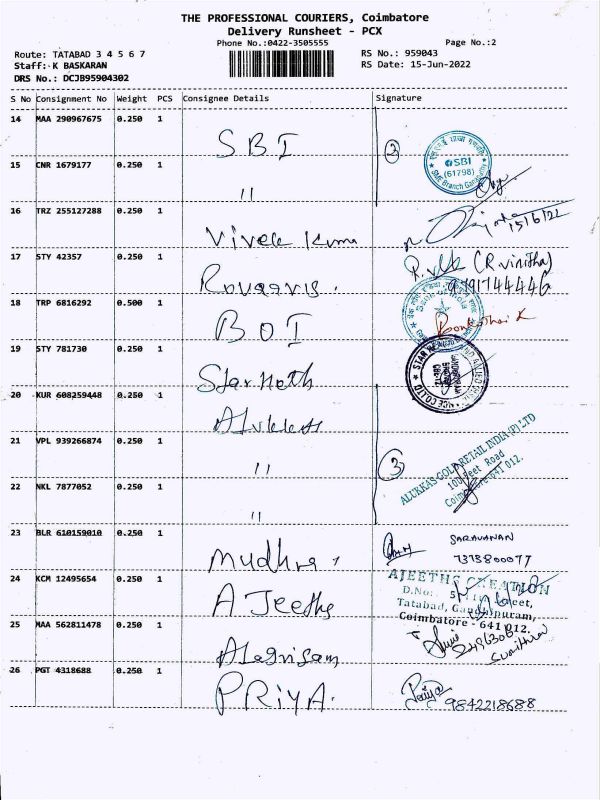 THE PROFESSIONAL COURIERS, Coimbatore
Delivery Runsheet - PCX
Phone No.:0422-3505555
Page No.:2
Route: TATABAD 3 4 5 6 7
RS No.: 959043
Staff: K BASKARAN
RS Date: 15-Jun-2022
DRS No.: DCJB95904302
S No Consignment No Weight PCS Consignee Details Signature
14 MAA 290967675 0.250 1 SBI
2
SBI
(61798)
15 CNR 1679177 0.250 1 "
16 TRZ 255127288 0.250 1 Vivek Kuma
15/6/22
17 STY 42357 0.250 1
(R.vinitha)
9791744446
18 TRP 6816292 0.500 1 BOI
19 STY 781730 0.250 1 Star Health
20 KUR 608259448 0.250 1
21 VPL 939266874 0.250 1 "
3
ALUKKAS GOLD RETAIL INDIA (P) LTD
100 Feet Road
Coimbatore-641 012.
22 NKL 7877052 0.250 1 "
23 BLR 610159010 0.250 1 Mudhra
SARAVANAN
7373800077
24 KCM 12495654 0.250 1 A Jeeths
AJEETHS CREATION
D.No:
Tatabad, Gandhipuram,
Coimbatore - 641 012.
25 MAA 562811478 0.250 1
26 PGT 4318688 0.250 1 PRIYA.
Priya
9842218688